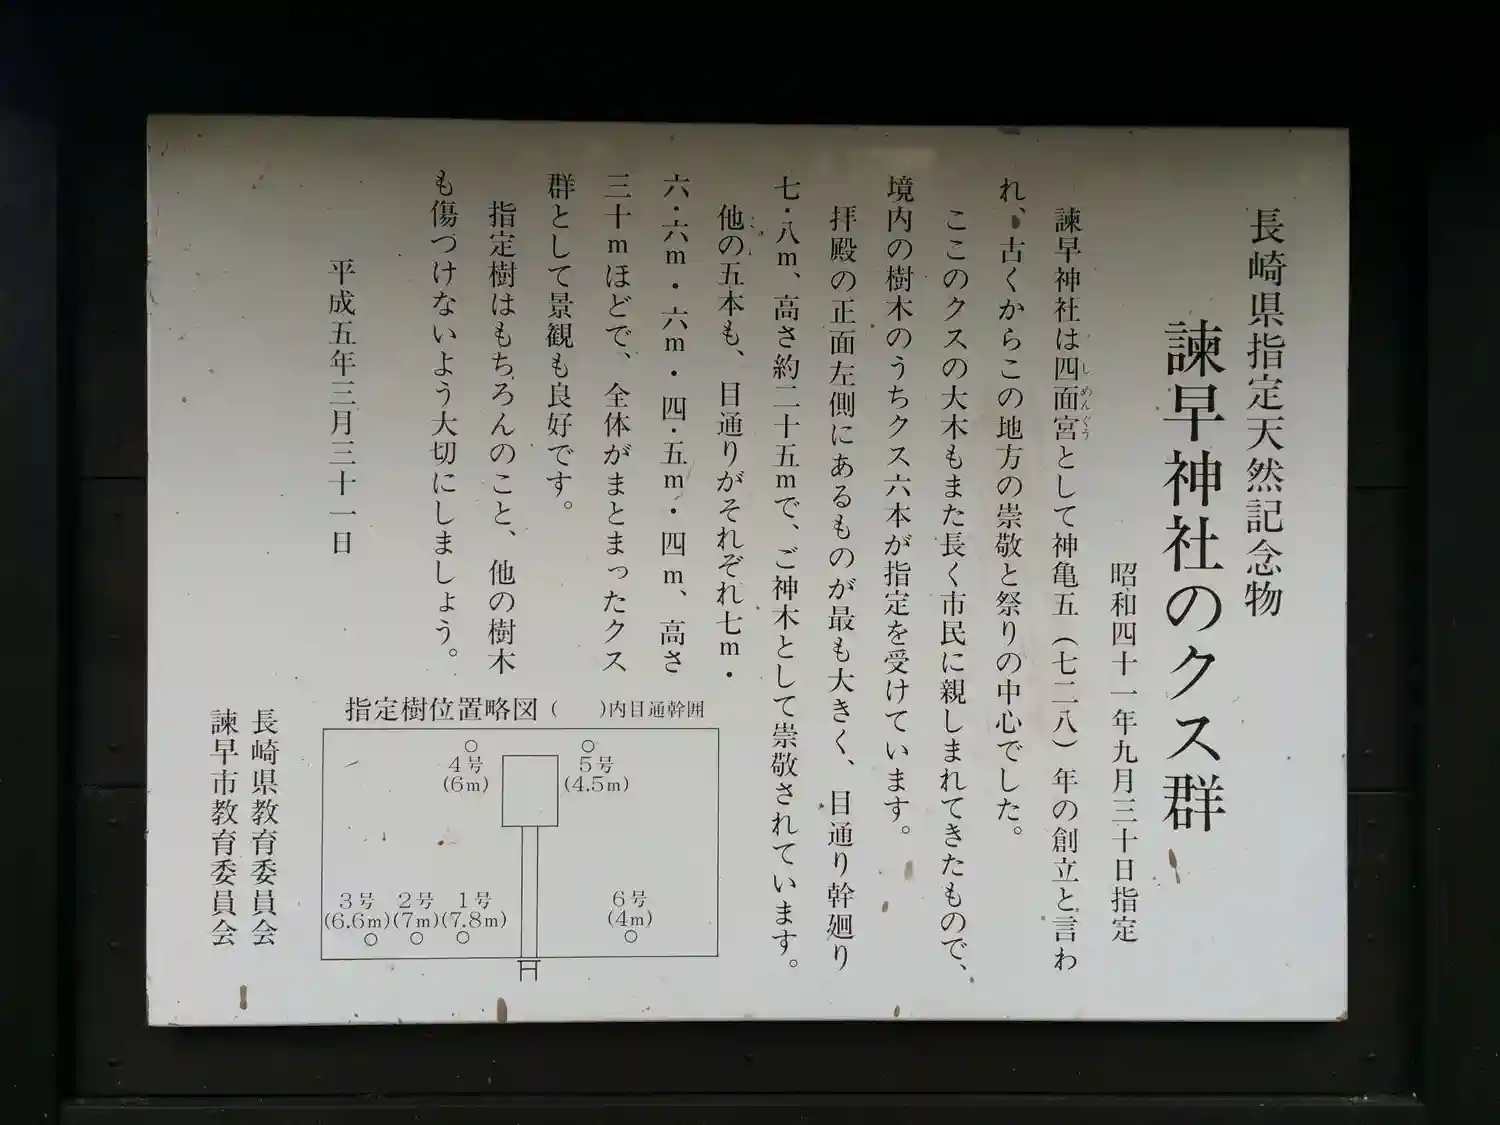 長崎県指定天然記念物
諫早神社のクス群
昭和四十一年九月三十日指定
諫早神社は四面宮として神亀五（七二八）年の創立と言わ
しめんぐう
れ、古くからこの地方の崇敬と祭りの中心でした。
ここのクスの大木もまた長く市民に親しまれてきたもので、
境内の樹木のうちクス六本が指定を受けています。
拝殿の正面左側にあるものが最も大きく、目通り幹廻り
七・八m、高さ約二十五mで、ご神木として崇敬されています。
他の五本も、目通りがそれぞれ七m・
六・六m・六m・四・五m・四m、高さ
三十mほどで、全体がまとまったクス
群として景観も良好です。
指定樹はもちろんのこと、他の樹木
も傷つけないよう大切にしましょう。
平成五年三月三十一日
指定樹位置略図（　）内目通幹囲
4号
(6m)
5号
(4.5m)
3号
(6.6m)
2号
(7m)
1号
(7.8m)
6号
(4m)
長崎県教育委員会
諫早市教育委員会